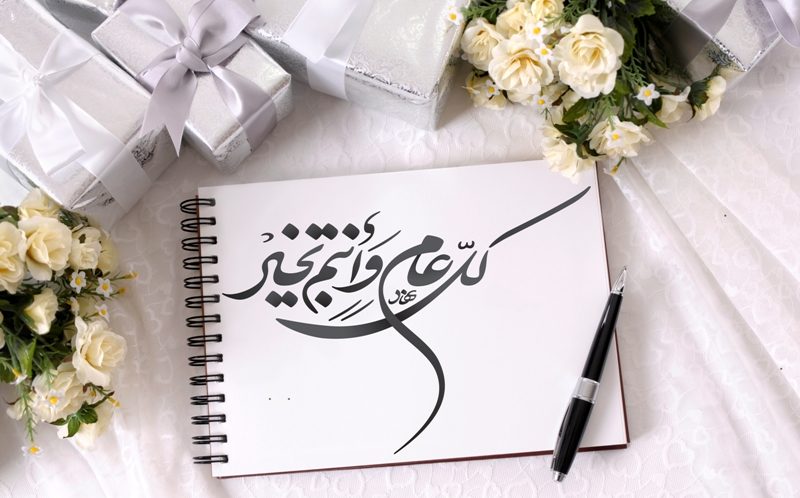 كل عام وأنتم بخير